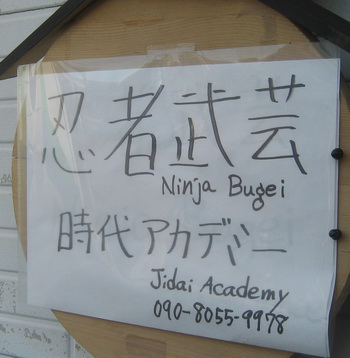 忍者武芸
Ninja Bugei
時代アカデミー
Jidai Academy
090-8055-9978